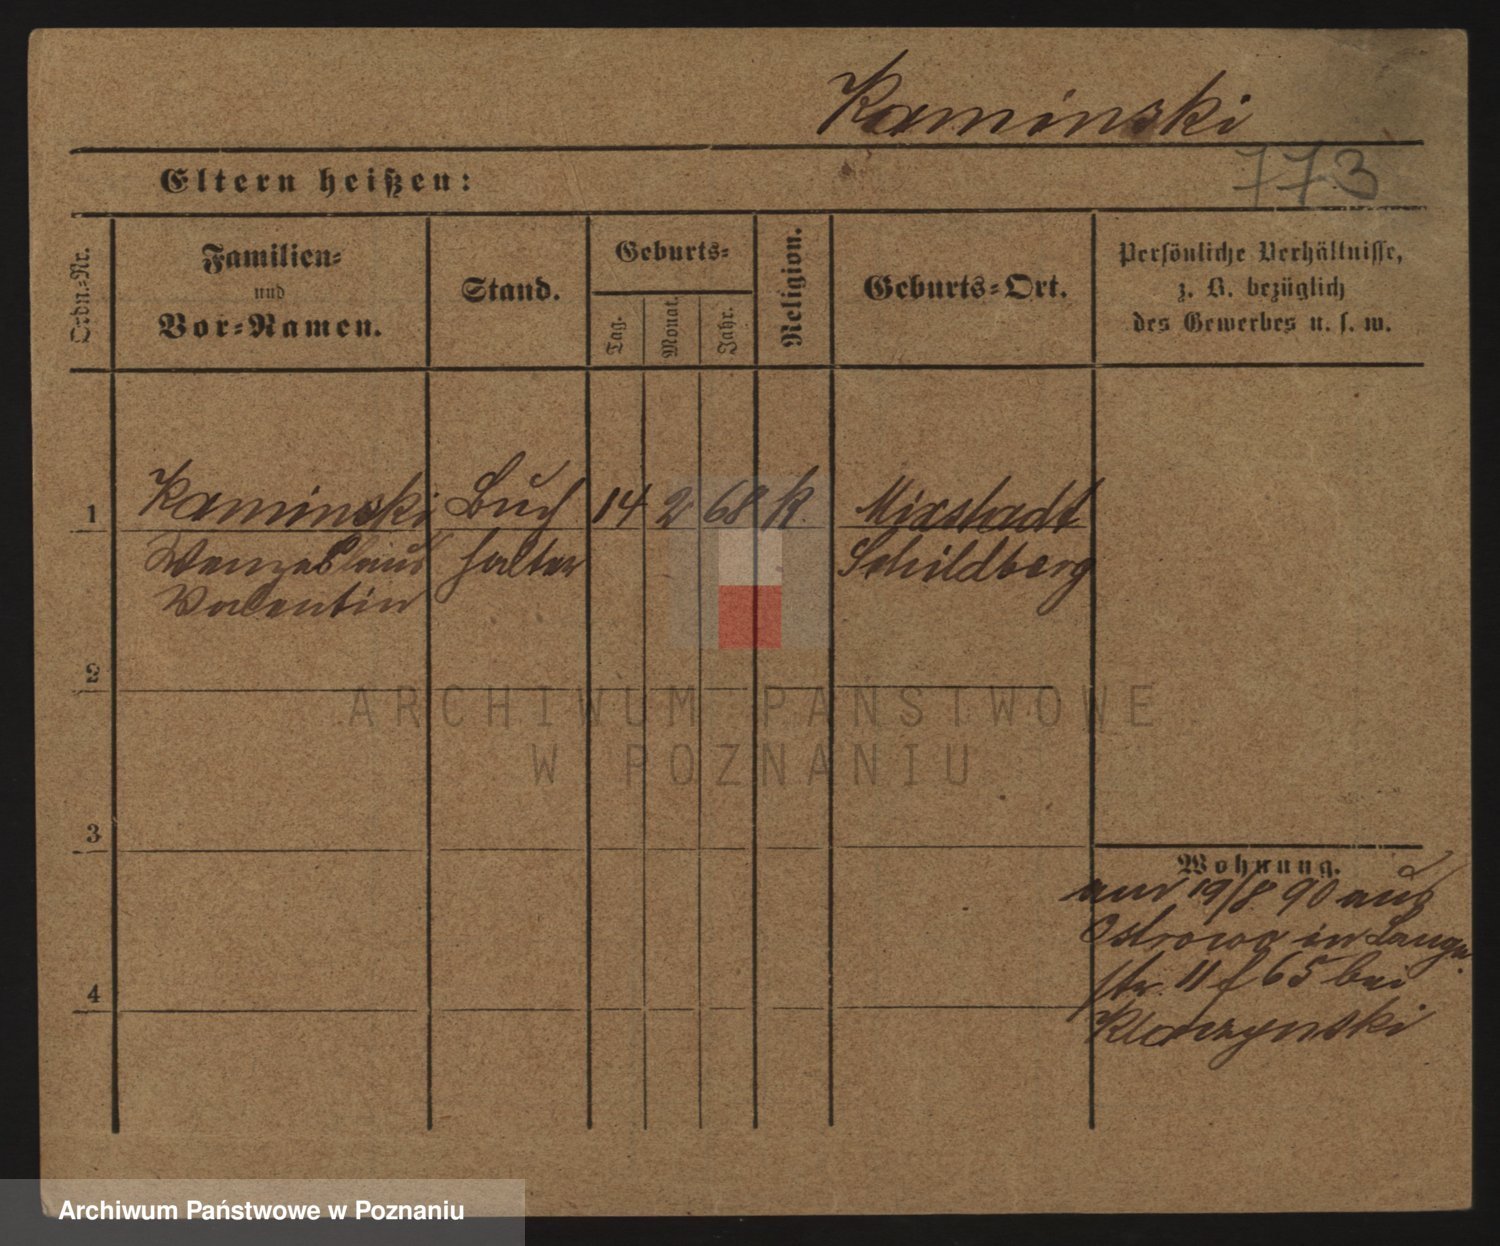 Kaminski
Eltern heißen:
773
Ordn.-Nr.
Familien-
und
Vor-Namen.
Stand.
Geburts-
Tag.
Monat.
Jahr.
Religion.
Geburts-Ort.
Persönliche Verhältnisse,
z. B. bezüglich
des Gewerbes u. s. w.
1 Kaminski Buch 14 2 68 k. Mixstadt
Wenzeslaus halter Schildberg
Valentin
2
ARCHIWUM PAŃSTWOWE
W POZNANIU
3
Wohnung.
19/8 90 aus
Ostrowo in Lange
4
str. 11 f 65 bei
Klaczynski
Archiwum Państwowe w Poznaniu